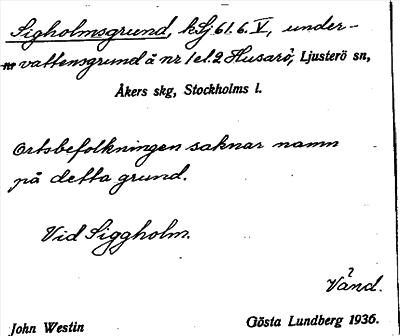 Sigholmsgrund, kSj 61.6.V, under-
vattensgrund å nr 1 el. 2 Husarö, Ljusterö sn,
Åkers skg, Stockholms l.
Ortsbefolkningen saknar namn
på detta grund.
Vid Siggholm.
?
Vänd.
John Westin Gösta Lundberg 1936.